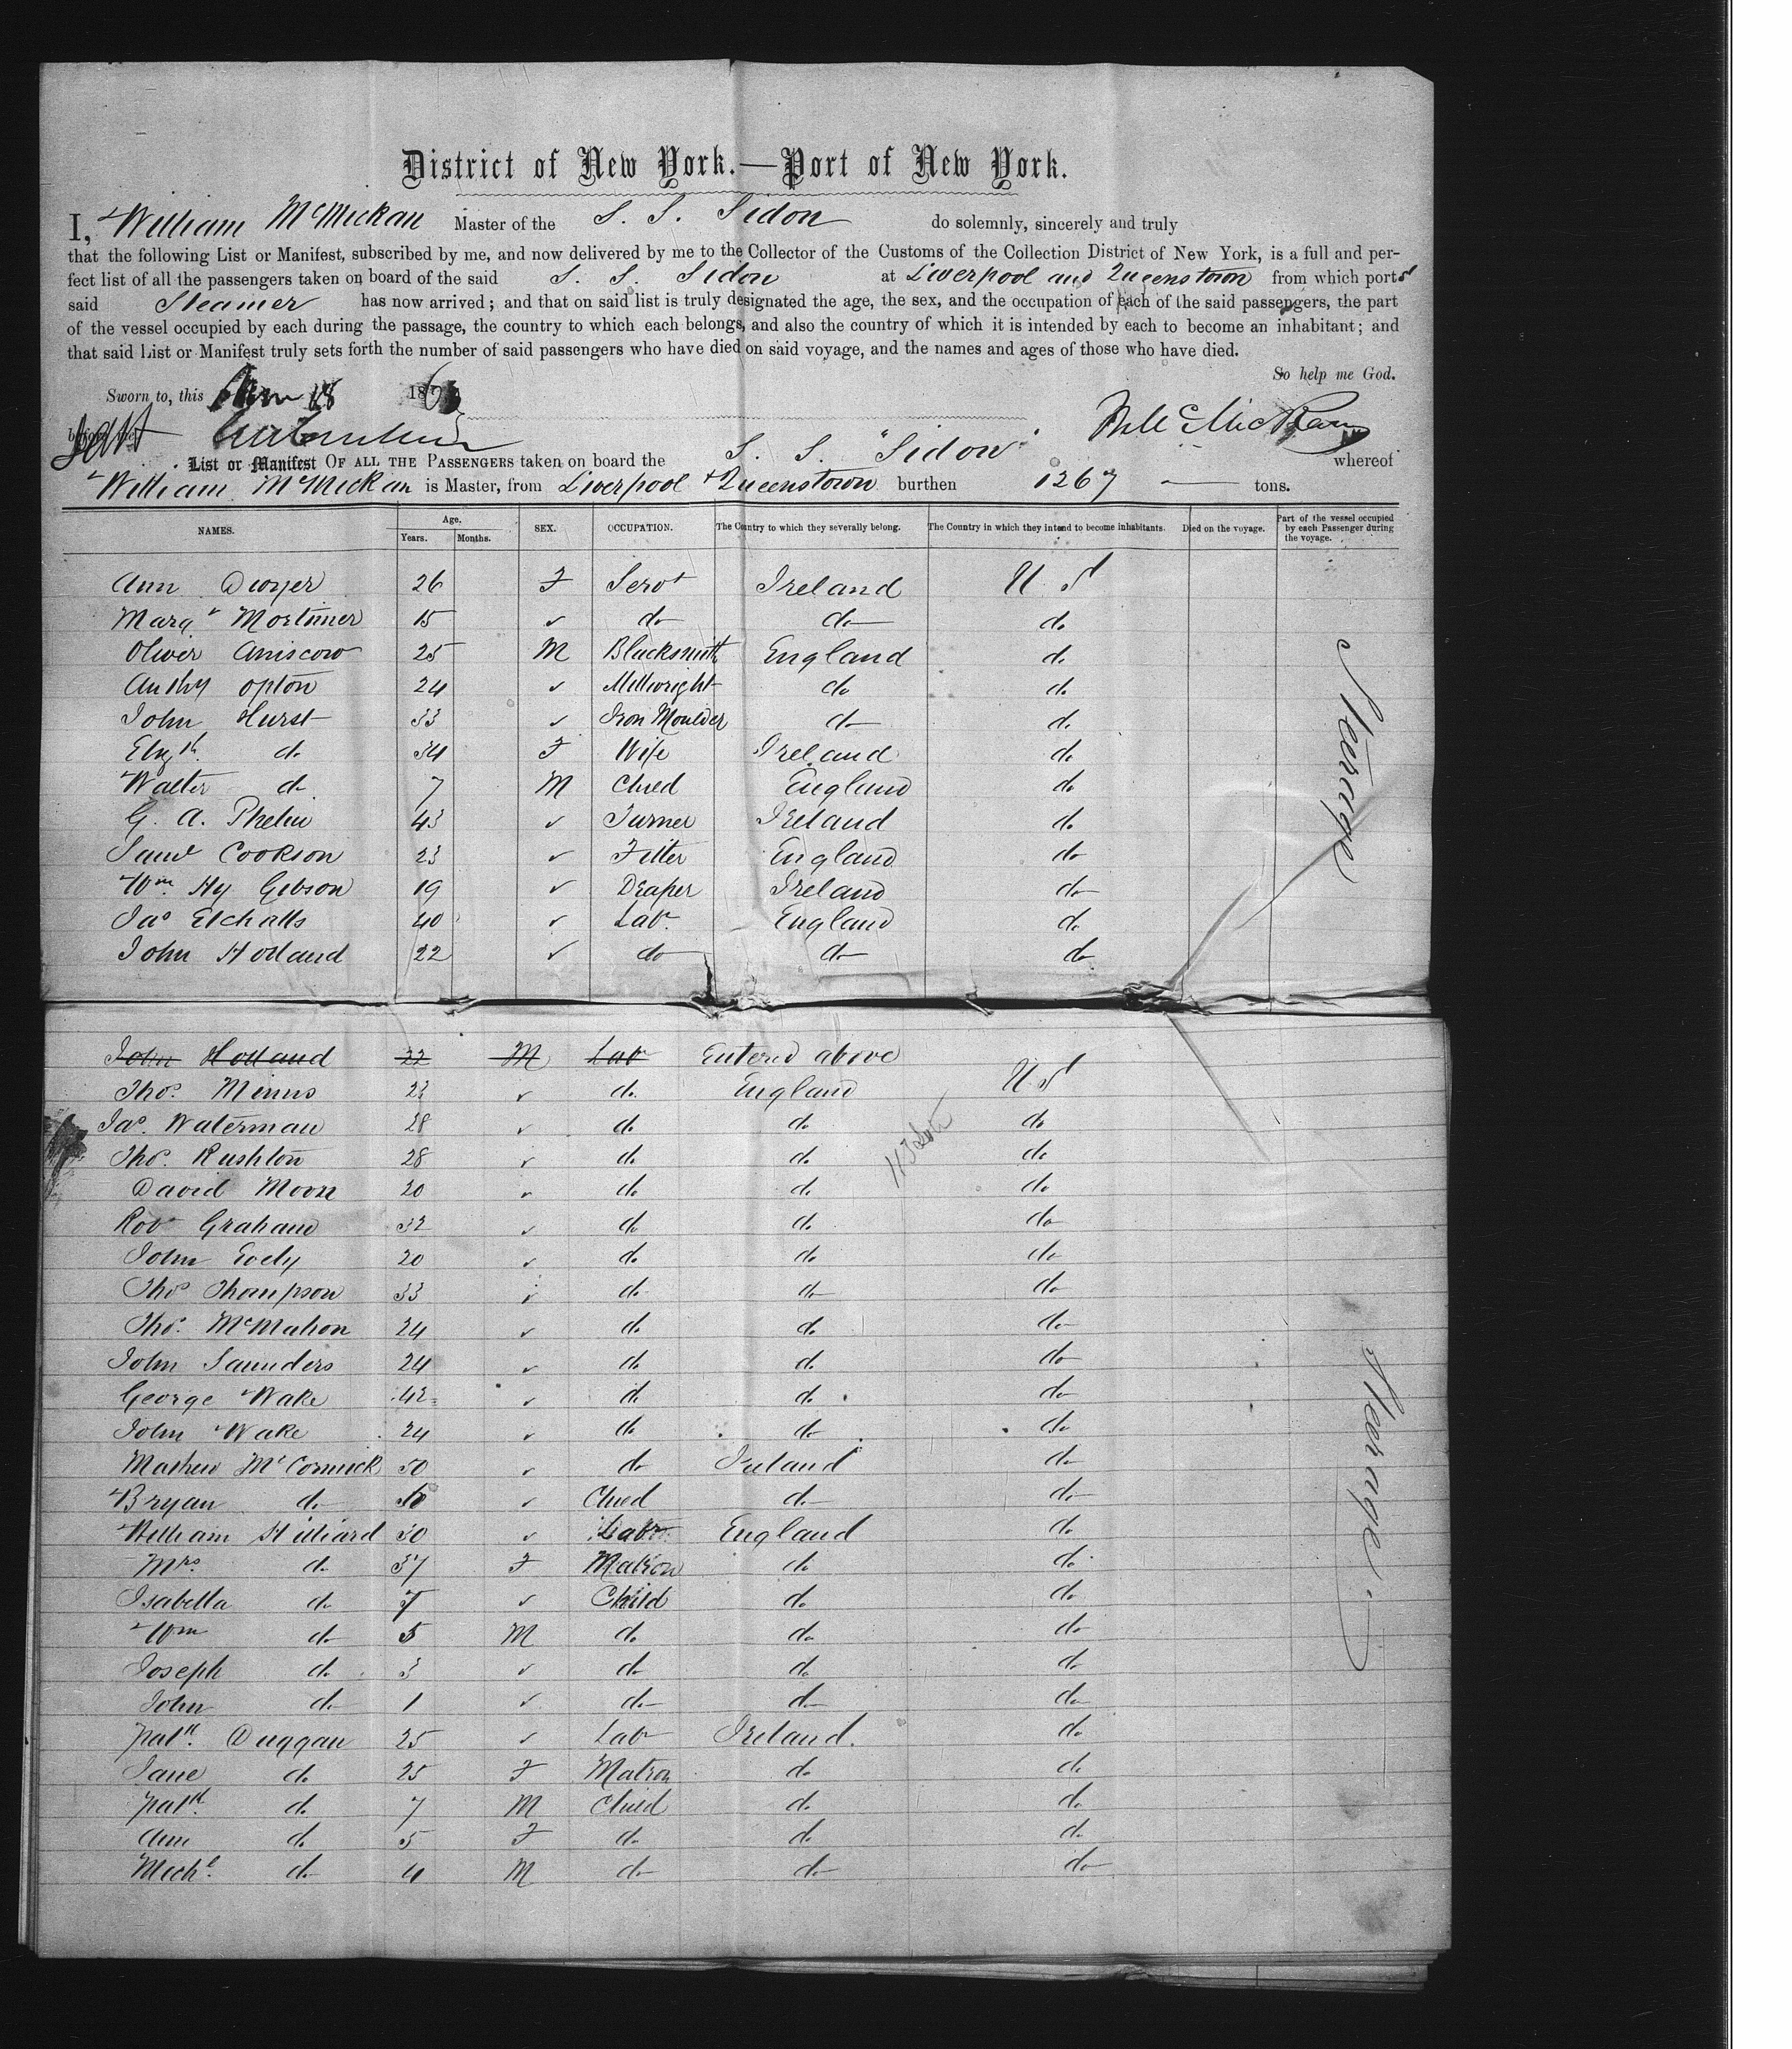 District of New York.—Port of New York.
I, William McMickan Master of the S. S. Sidon do solemnly, sincerely and truly
that the following List or Manifest, subscribed by me, and now delivered by me to the Collector of the Customs of the Collection District of New York, is a full and per-
fect list of all the passengers taken on board of the said S. S. Sidon at Liverpool and Queenstown from which ports
said Steamer has now arrived; and that on said list is truly designated the age, the sex, and the occupation of each of the said passengers, the part
of the vessel occupied by each during the passage, the country to which each belongs, and also the country of which it is intended by each to become an inhabitant; and
that said List or Manifest truly sets forth the number of said passengers who have died on said voyage, and the names and ages of those who have died.
So help me God.
Sworn to, this 18 186
List or Manifest OF ALL THE PASSENGERS taken on board the S. S. "Sidon" whereof
William McMickan is Master, from Liverpool + Queenstown burthen 1267 — tons.
NAMES. Age. Years. Months. SEX. OCCUPATION. The Country to which they severally belong. The Country in which they intend to become inhabitants. Died on the voyage. Part of the vessel occupied by each Passenger during the voyage.
Ann Dwyer 26 F Servt Ireland U S
Margt Mortimer 15 ✓ do do do
Oliver Aniscow 25 M Blacksmith England do
Anthy Opton 24 ✓ Millwright do do
John Hurst 33 ✓ Iron Moulder do do
Elizth do 34 F Wife Ireland do
Walter do 7 M Child England do
G. A. Phelin 43 ✓ Turner Ireland do
Saml Cookson 23 ✓ Fitter England do
Wm Hy Gibson 19 ✓ Draper Ireland do
Jas Etchalls 40 ✓ Labr England do
John Holland 22 ✓ do do do
Steerage
John Holland 22 M Labr Entered above
Thos. Minns 23 ✓ do England U S
Jas. Waterman 28 ✓ do do do
Thos. Rushton 28 ✓ do do do
David Moon 20 ✓ do do do
Robt Graham 32 ✓ do do do
John Eoely 20 ✓ do do do
Thos Thompson 33 ✓ do do do
Thos. McMahon 24 ✓ do do do
John Saunders 24 ✓ do do do
George Wake 42 ✓ do do do
John Wake 24 ✓ do do do
Mathew McCormick 50 ✓ do Ireland do
Bryan do ✓ Child do do
William Hilliard 30 ✓ Labr England do
Mrs. do 37 F Matron do do
Isabella do 7 ✓ Child do do
Wm do 5 M do do do
Joseph do 3 ✓ do do do
John do 1 ✓ do do do
Patk. Duggan 25 ✓ Labr Ireland. do
Jane do 25 F Matron do do
Patk. do 7 M Child do do
Ann do 5 F do do do
Michl. do 4 M do do do
Steerage